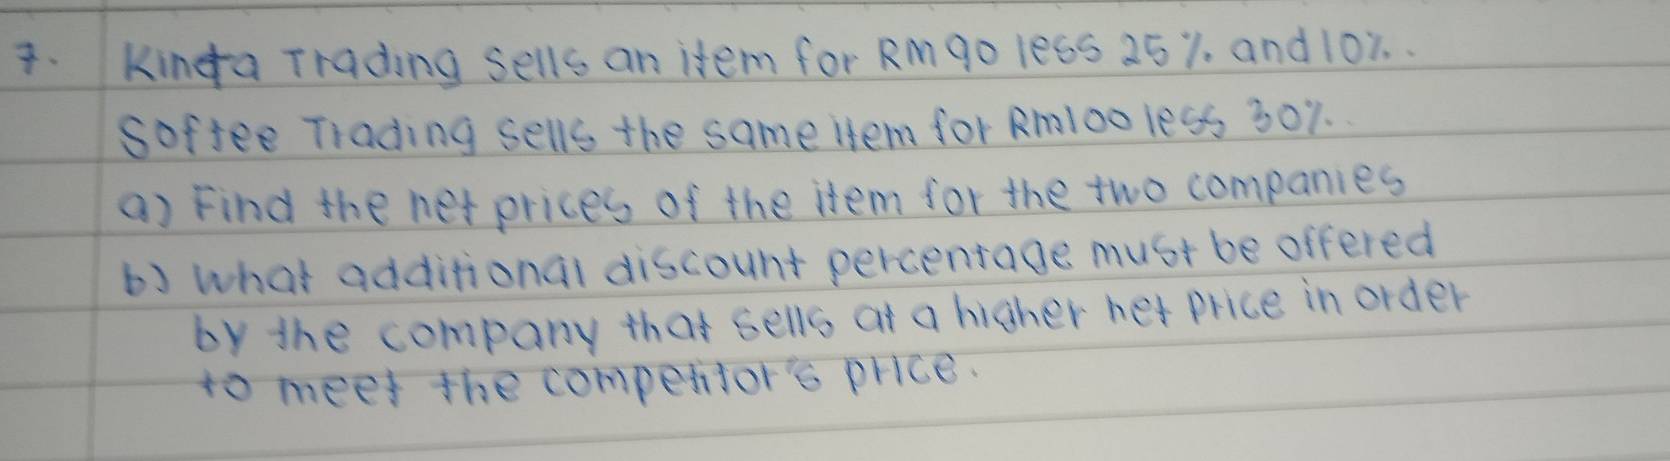 7. Kinta Trading sells an item for RM90 less 25% and 10%.
Softee Trading sells the same item for RM100 less 30%.
a) Find the net prices of the item for the two companies
b) What additional discount percentage must be offered
by the company that sells at a higher net price in order
to meet the competitor's price.